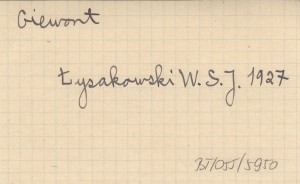 Giewont
Łysakowski W. S. J. 1927
BT/055/5950